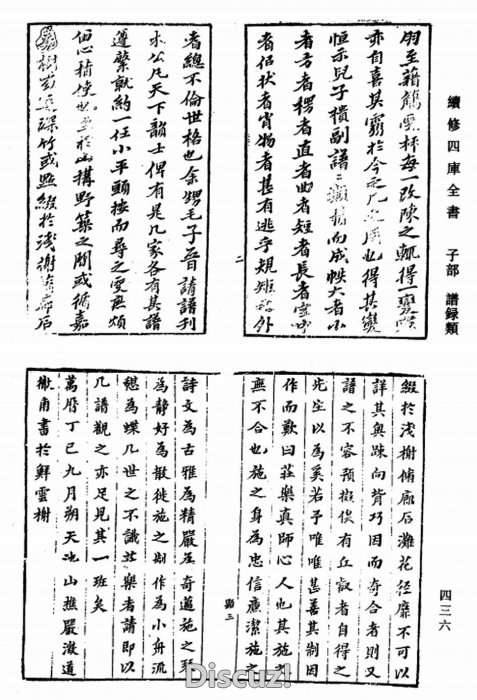 續修四庫全書 子部 譜録類
用至藉觴雲杯每一改陳之輒得一變
亦自喜其窮於今之几之用也得其變
恒示兒子橫副譜之揚而成帙大者小
者方者楞者直者曲者短者長者
者侶伏者有物者甚有逃乎規矩外
二
者總不倫世格也余甥毛子晉請譜刊
未公凡天下韻士俾有是几家各有其譜
遵檠就約一任小平頭按而尋之更無煩
但心猜使也至於山構野築之間或循嘉
樹邊深竹或點綴於淺榭脩廊石
四三六
綴於淺榭脩廊石灘花徑靡不可以
詳其奧趺向背巧因而奇合者則又
譜之不容預擬俟有丘者自得之
先生以為奚若予唯唯甚善其制因
作而歎曰莊樂真師心人也其施之
無不合也施之身為忠信廉潔施之
三
詩文為古雅為精嚴至奇邁施之琴
為靜好為散徙施之制作為小舟流
憩為蝶几世之不識莊樂者請即以
几譜觀之亦足見其一班矣
萬曆丁巳九月朔天池山樵嚴澂道
澈甫書於鮮雲榭
Discuz!